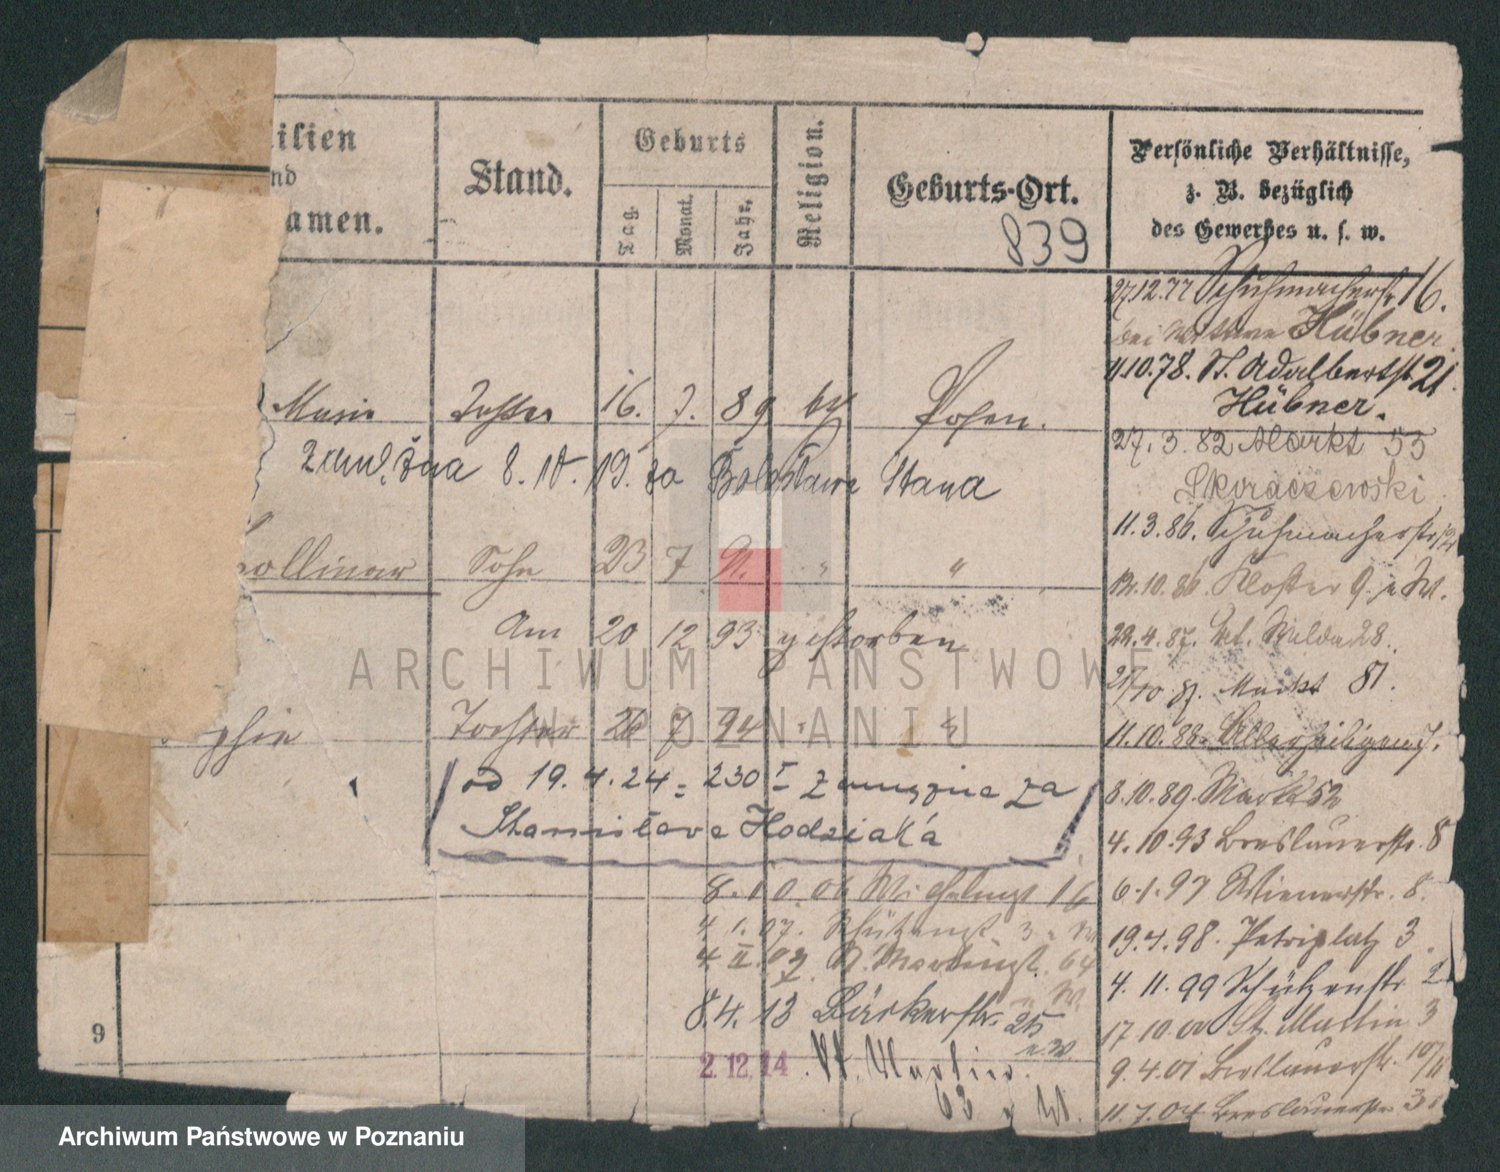 ilien
nd
amen.
Stand.
Geburts
Tag.
Monat.
Jahr.
Religion.
Geburts-Ort.
839
Persönliche Verhältnisse,
z. B. bezüglich
des Gewerbes u. s. w.
Marie Tochter 16. 7. 89 Posen.
8. 10. 19. za Bolesława Stana
ollinar Sohn 23 7 91. " "
Am 20 12 93 gestorben
phie Tochter 26 7 94
od 19. 4. 24 = 230 I zamężna za
Stanisława Hodziaka
8. 10. 06 16
4. 1. 07. Schützenst 3
4. II. 07 64
8. 4. 13 Bäckerstr. 25
2. 12. 14. St. Martin
63
9
27.12.77 Schuhmacherstr 16.
bei Wittwe Hübner
11.10.78. St. Adalbertst. 21.
Hübner.
27. 3. 82 Markt 55
Skoraczewski
11. 3. 86. Schuhmacherstr
12.10.86 Kloster 9.
22. 4. 87. 28.
10 87. Markt 81.
11.10.88. Allerheiligen 7.
8.10.89. Markt 52
4.10.93 Breslauerstr. 8
6.1.97 Wienerstr. 8.
19.4.98. Petriplatz 3.
4. 11. 99 Schützenstr 2
17 10.00 St. Martin 3
9. 4. 01 Breslauerstr.
11. 7. 04 Breslauerstr
ARCHIWUM PAŃSTWOWE
W POZNANIU
Archiwum Państwowe w Poznaniu